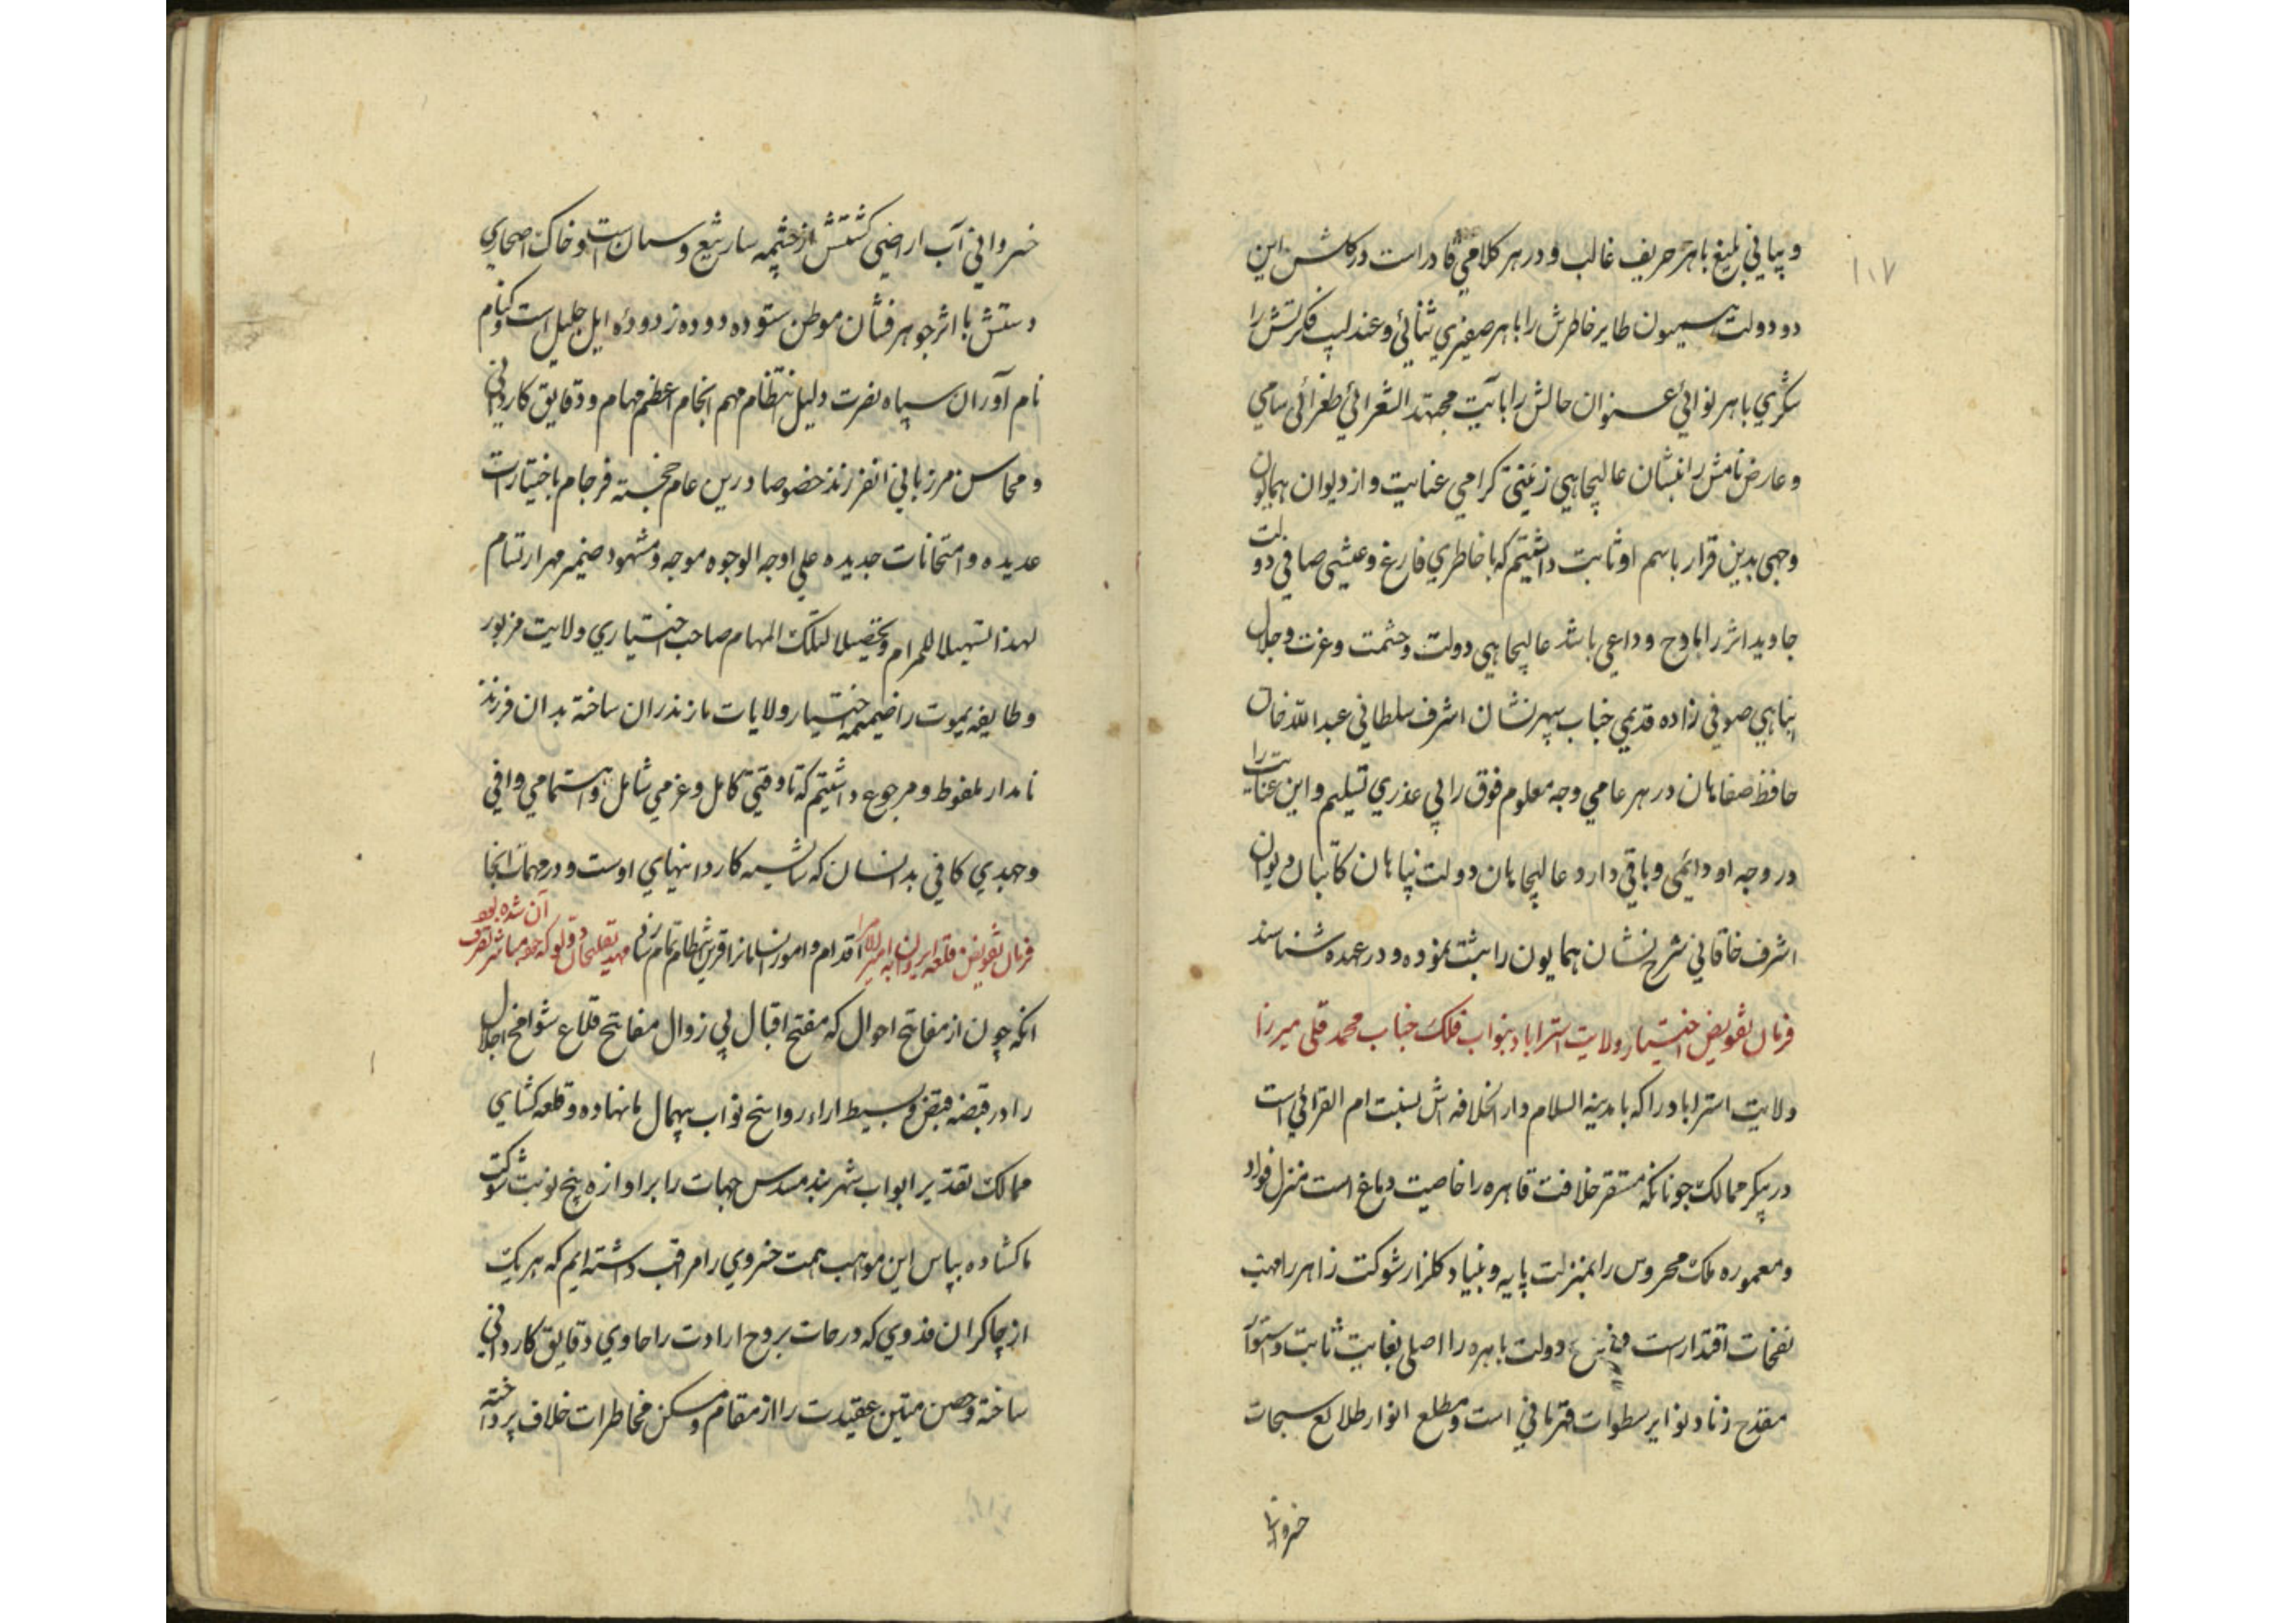 ۱۰۷
و بیانی بلیغ با هر حریف غالب و در هر کلامی قادر است در کلشن این
دو دولت همیون طایر خاطرش را با هر صفیری ثنائی و عندلیب فکرتش را
شکری با هر نوائی عنوان حالش را بآیت مجتهد الشعرائی طغرائی سامی
و عارض نامش را بنشان عالیجاهی زینتی کرامی عنایت و از دیوان همایون
وجهی بدین قرار باسم او ثابت داشتیم که با خاطری فارغ و عیشی صافی دولت
جاوید اثر را مادح و داعی باشد عالیجاهی دولت و حشمت و عزت و جلال
پناهی صوفی زاده قدیمی جناب سپهر نشان اشرف سلطانی عبد الله خان
حافظ صفاهان در هر عامی وجه معلوم فوق را بی عذری تسلیم و این عنایت را
در وجه او دائمی و باقی دارد عالیجاهان دولت پناهان کاتبان دیوان
اشرف خاقانی شرح نشان همایون را ثبت نموده و در عهده شناسند
فرمان تفویض اختیار ولایت استراباد بنواب فلک جناب محمد قلی میرزا
ولایت استراباد را که با مدینه السلام دار الخلافه اش نسبت ام القرائی است
در پیکر ممالک جونانکه مستقر خلافت قاهره را خاصیت دماغ است منزل فواد
و معموره ملک محروس را بمنزلت پایه و بنیاد کلزار شوکت زاهر را مهب
نفحات اقتدارست و دولت باهره را اصلی بغایت ثابت و استوار
مقدح زناد نوایر سطوات قهرمانی است و مطلع انوار طلایع سبحات
خسروانی
خسروانی آب اراضی کشتش از چشمه سار تیغ و سمان است و خاک صحاری
دستش با اثر جوهر فشان موطن ستوده دوده زدوده ایل جلیل است و کنام
نام آوران سپاه نصرت دلیل نتظام مهم انجام اعظم مهام و دقایق کاردانی
و محاسن مرزبانی انفرزند خصوصا درین عام خجسته فرجام باختیارات
عدیده و امتحانات جدیده علی اوجه الوجوه موجه و مشهود ضمیر مهر ارتسام
لهذا تسهیلا للمرام و تحصیلا لتلک المهام صاحب اختیاری ولایت مزبور
و طایفه یموت را ضمیمه اختیار ولایات مازندران ساخته بدان فرزند
نامدار ملفوظ و مرجوع داشتیم که تا وقتی کامل و عزمی شامل و اهتمامی وافی
و جهدی کافی بدانسان که شایسته کاردانیهای اوست و در مهمات انجا
اقدام و امور انسامانرا قرین انتظام تمام رساند
فرمان تفویض قلعه ایروان به امیر الامرا مهدیقلیخان دولو که خود مباشر تصرف آن شده بود
انکه چون از مفاتح احوال که مفتح اقبال بی زوال مفاتح قلاع شوامخ اجلال
را در قبضه قبض و بسیط اراء رواسخ نواب بیهمال ما نهاده و قلعه کشای
ممالک تقدیر ابواب شهر بند مسدس جهات را بر اوازه پنج نوبت شوکت
ما کشاده بپاس این مواهب همت خسروی را مراقب داشته ایم که هر یک
از چاکران فدوی که درجات بروج ارادت را حاوی دقایق کاردانی
ساخته و حصن متین عقیدت را از مقام و مسکن مخاطرات خلاف پرداخته